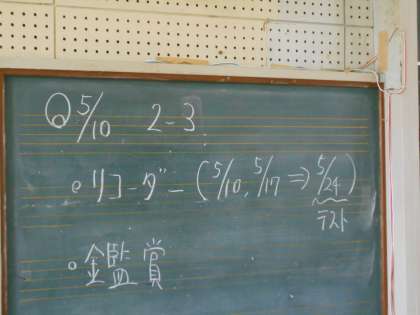 5/10 2-3
リコーダー(5/10, 5/17⇒5/24)
テスト
鑑賞